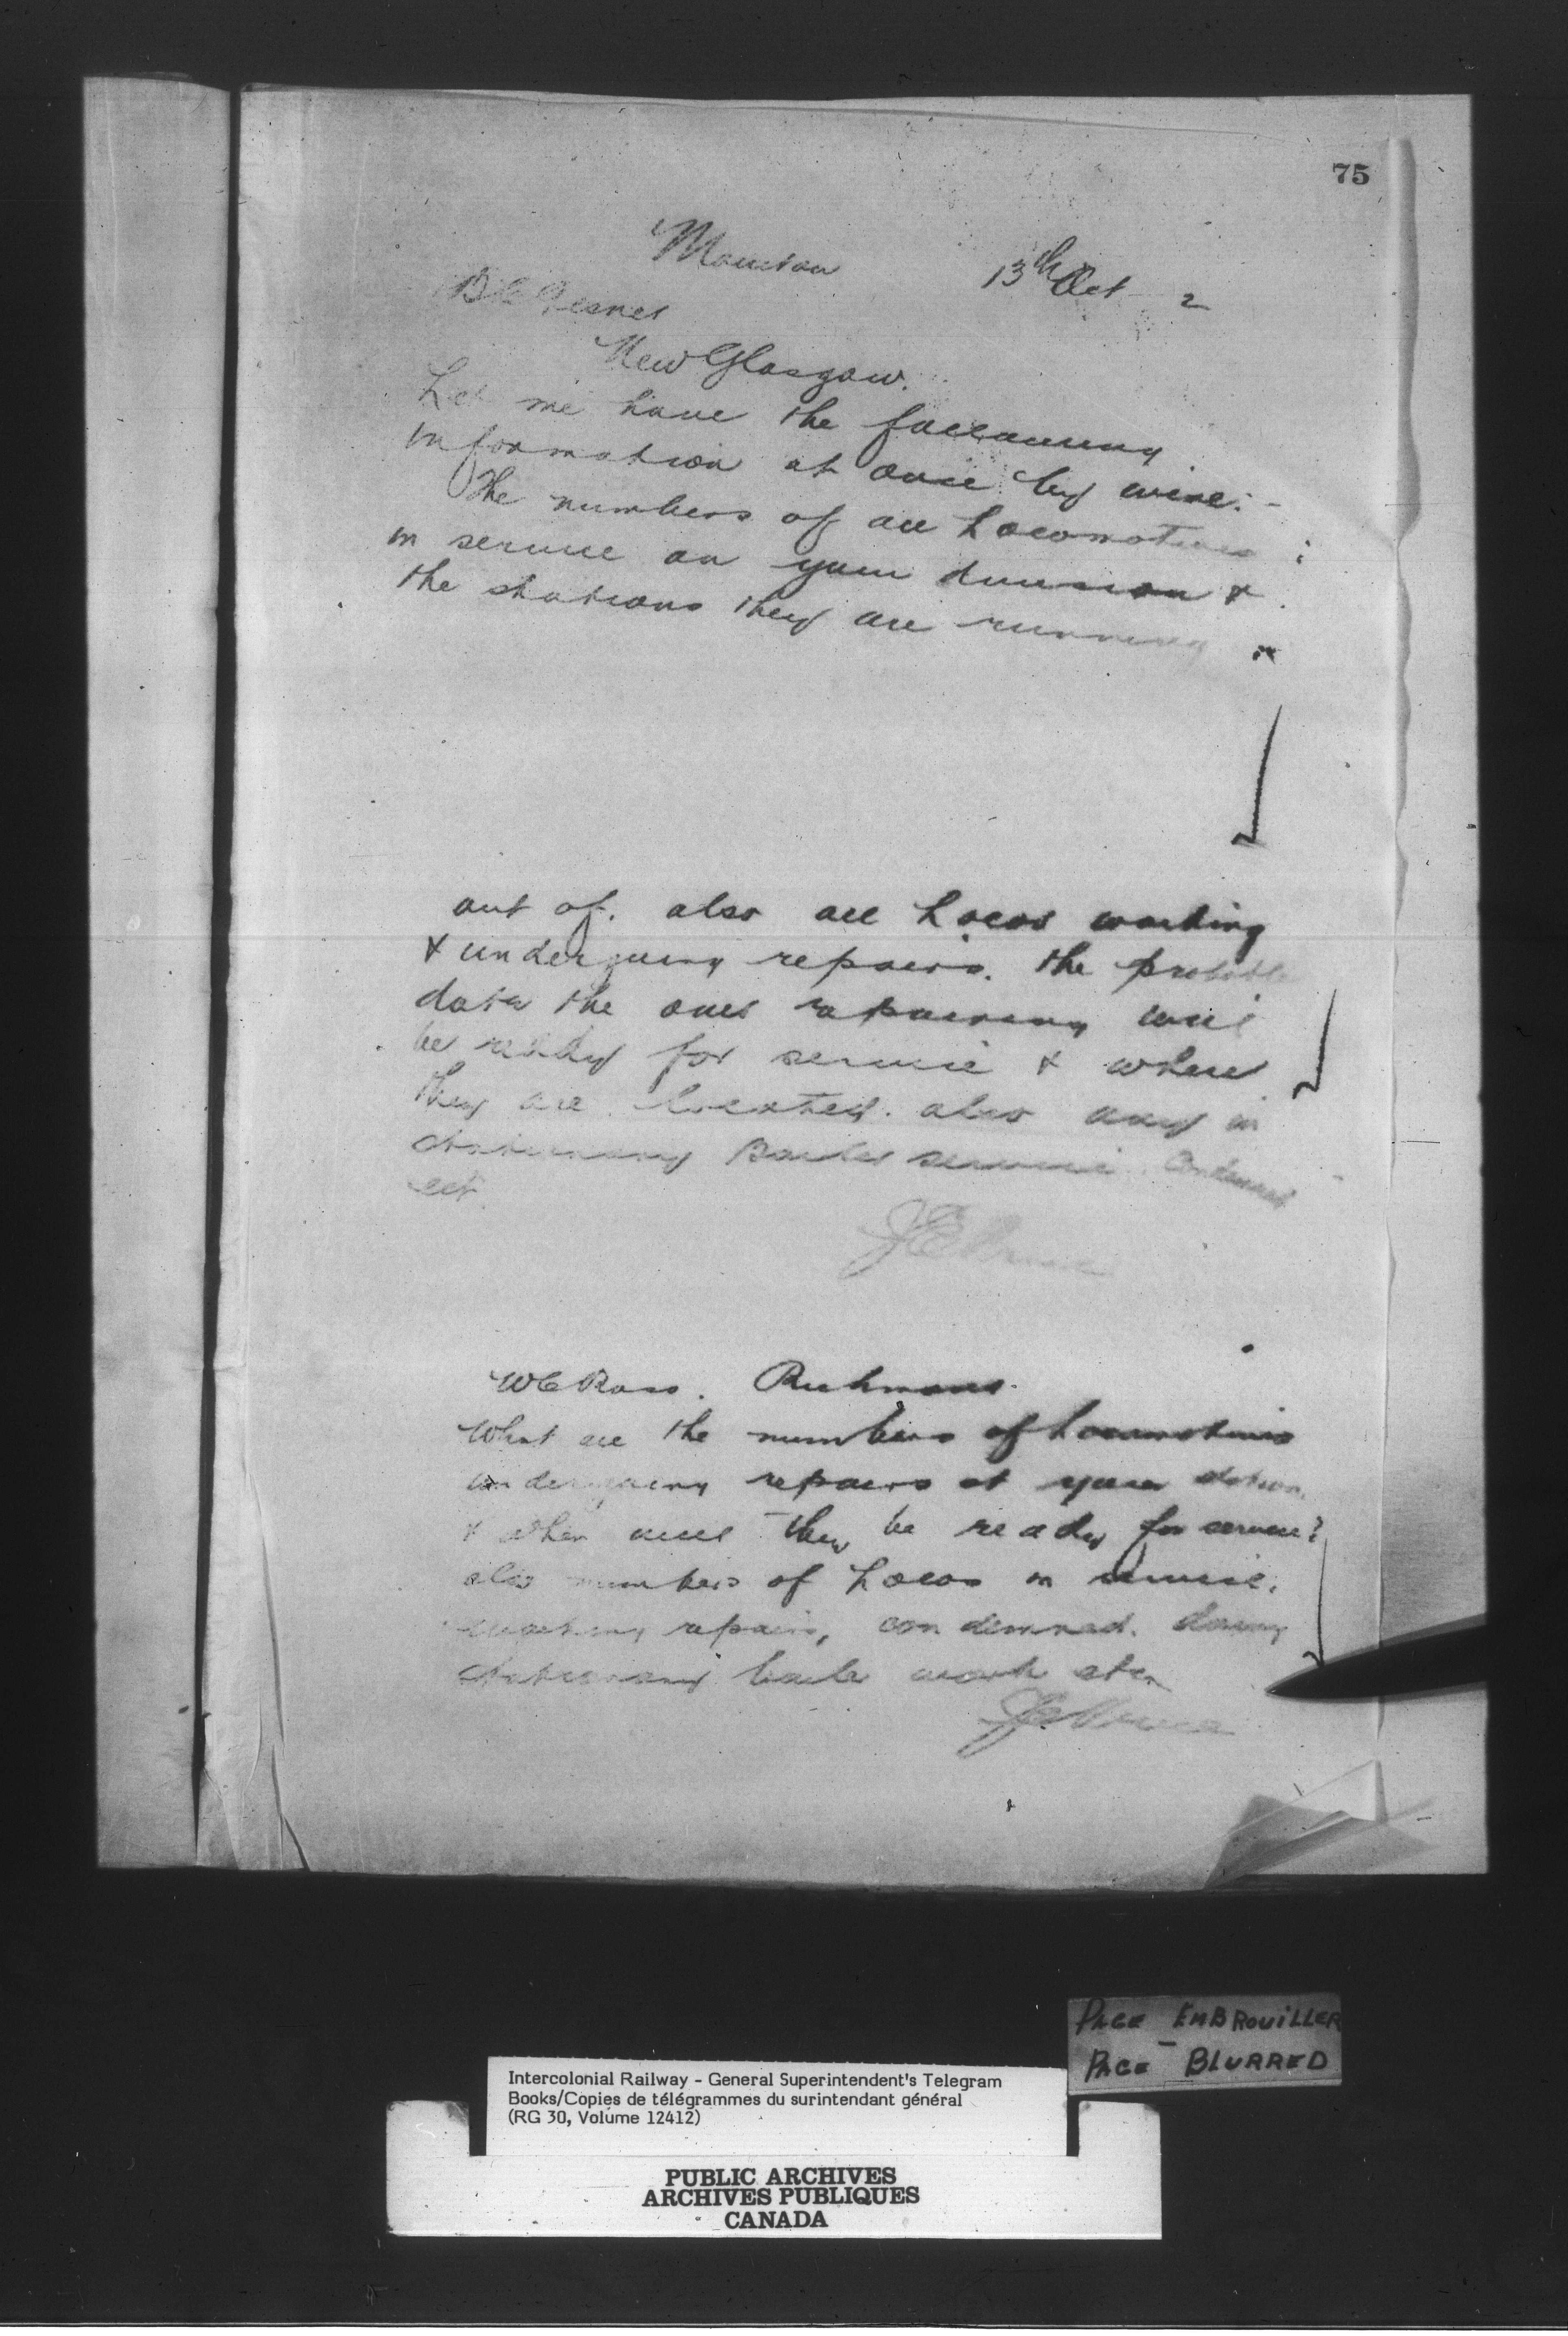 75
Moncton 13th Oct 2
B C Gesner
New Glasgow.
Let me have the following
information at once by wire:-
The numbers of all Locomotives
in service on your division &
the stations they are running
out of. also all Locos working
& undergoing repairs. the probable
date the ones repairing will
be ready for service & where
they are located. also any in
stationary Boiler service. Condemned
ect.
W C Ross. Richmond.
What are the numbers of Locomotives
undergoing repairs at your station
& when will they be ready for service?
also numbers of Locos in service.
repairs, condemned. doing
stationary boiler work etc.
PAGE EMBROUILLER
PAGE - BLURRED
Intercolonial Railway - General Superintendent's Telegram
Books/Copies de télégrammes du surintendant général
(RG 30, Volume 12412)
PUBLIC ARCHIVES
ARCHIVES PUBLIQUES
CANADA